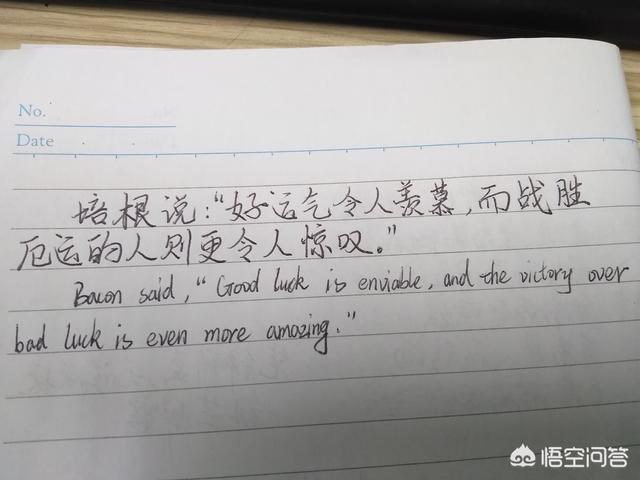 No.
Date
培根说:“好运气令人羡慕,而战胜
厄运的人则更令人惊叹。”
Bacon said, “Good luck is enviable, and the victory over
bad luck is even more amazing.”
悟空问答